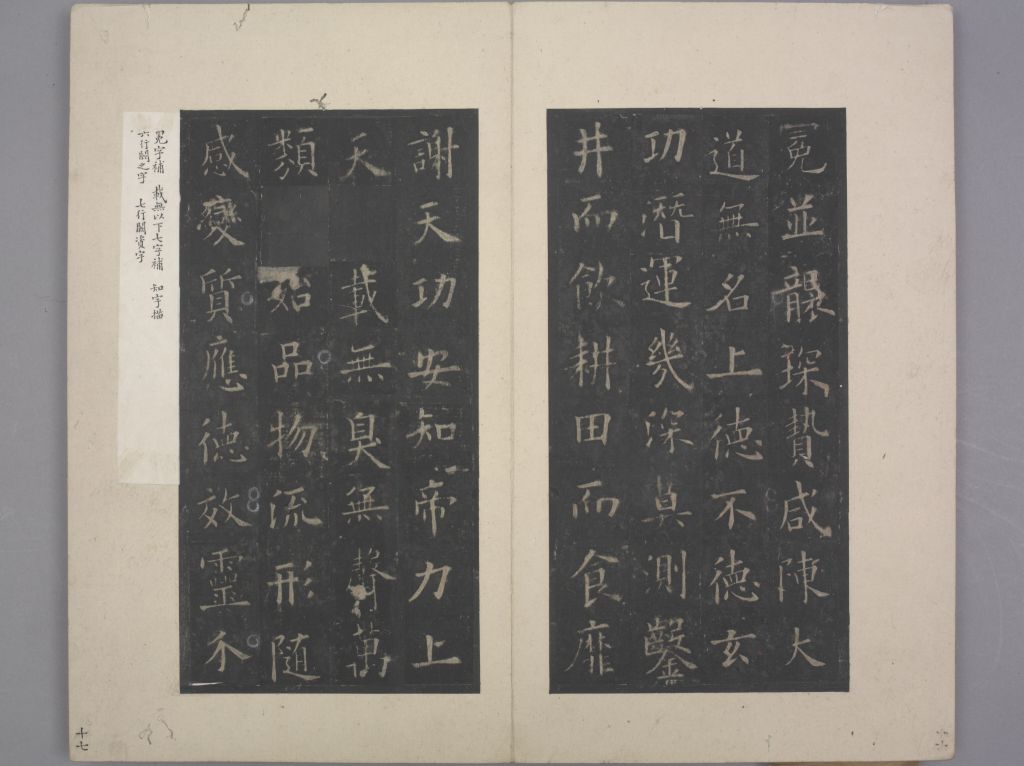 冕並襲琛贄咸陳大
道無名上德不德玄
功潛運幾深莫測鑿
井而飲耕田而食靡
謝天功安知帝力上
天載無臭無聲萬
類始品物流形随
感變質應德效靈介
冕字補 載無以下七字補 知字描
六行闕之字 七行闕資字
十七